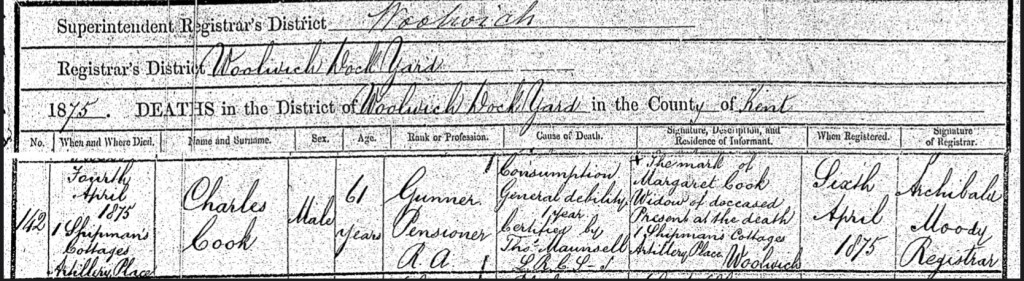 Superintendent Registrar's District Woolwich
Registrar's District Woolwich Dock Yard
1875. DEATHS in the District of Woolwich Dock Yard in the County of Kent
No. When and Where Died. Name and Surname. Sex. Age. Rank or Profession. Cause of Death. Signature, Description, and Residence of Informant. When Registered. Signature of Registrar.
142
Fourth
April
1875
1 Shipman's
Cottages
Artillery Place
Charles
Cook
Male
61
years
Gunner
Pensioner
R.A.
Consumption
General debility
1 year.
Certified by
Thos. Maunsell
L.R.C.S-I
X The mark of
Margaret Cook
Widow of deceased
Present at the death
1 Shipman's Cottages
Artillery Place Woolwich
Sixth
April
1875
Archibald
Moody
Registrar